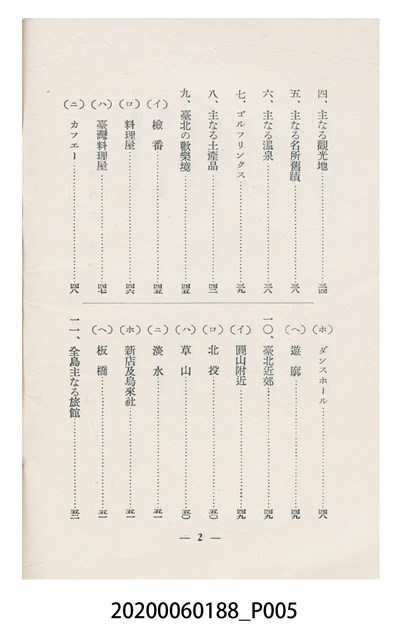 四、主なる觀光地…………………三四
五、主なる名所舊蹟…………………三八
六、主なる溫泉…………………三八
七、ゴルフリンクス…………………三九
八、主なる土產品…………………四二
九、臺北の歡樂境…………………四五
(イ) 檢番…………………四五
(ロ) 料理屋…………………四六
(ハ) 臺灣料理屋…………………四七
(ニ) カフエー…………………四八
(ホ) ダンスホール…………………四八
(ヘ) 遊廓…………………四九
一〇、臺北近郊…………………四九
(イ) 圓山附近…………………四九
(ロ) 北投…………………五〇
(ハ) 草山…………………五〇
(ニ) 淡水…………………五一
(ホ) 新店及烏來社…………………五一
(ヘ) 板橋…………………五一
一一、全島主なる旅館…………………五二
— 2 —
20200060188_P005